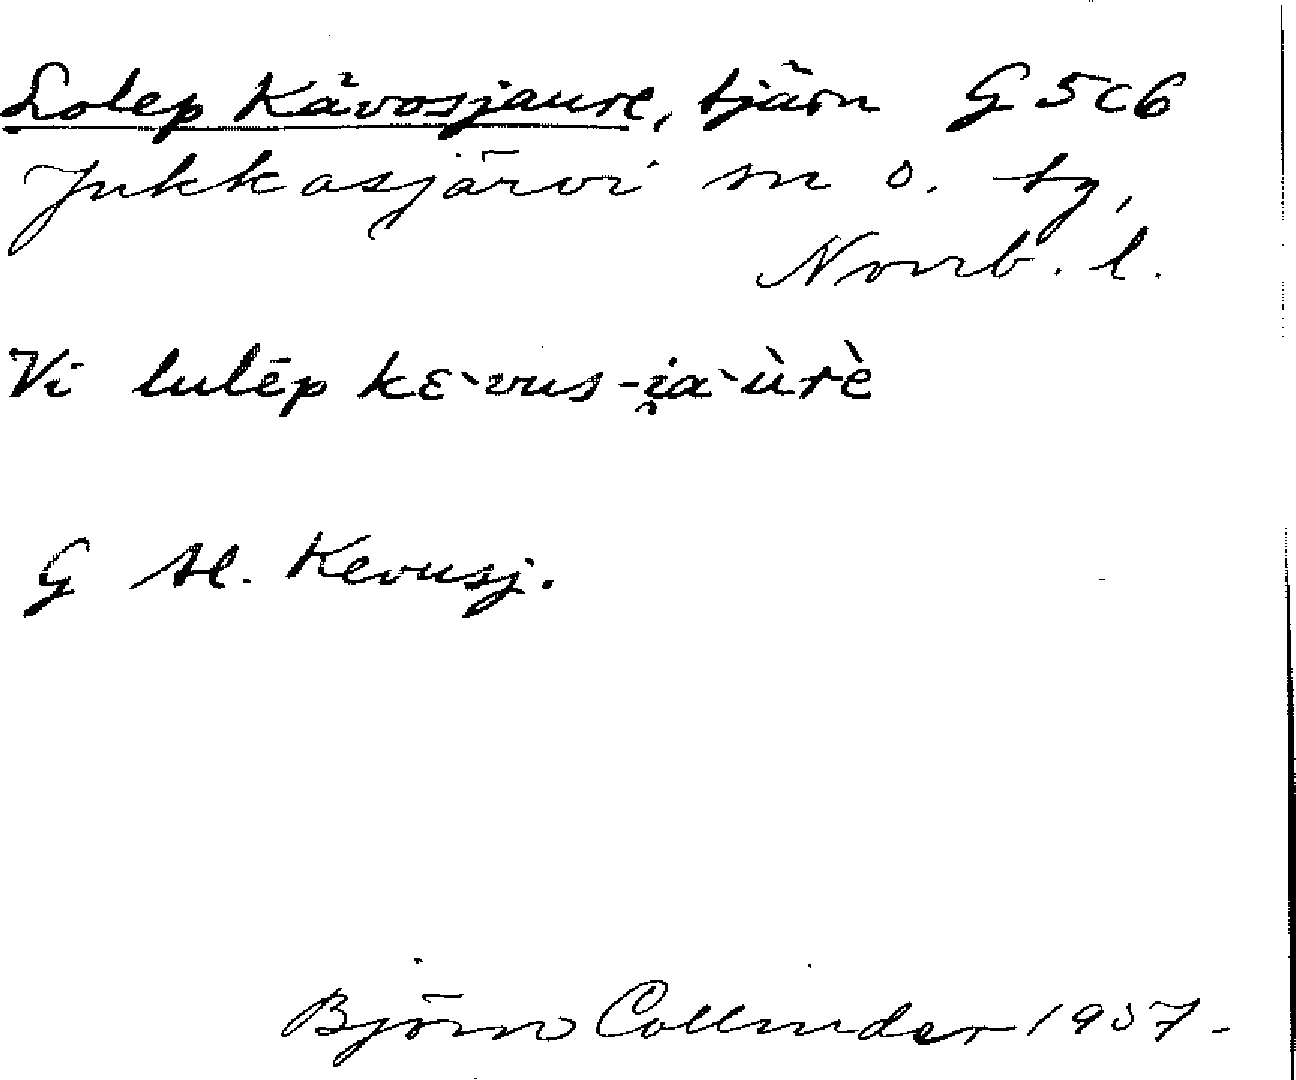 Lolep Kävosjaure, tjärn G 5c6
Jukkasjärvi sn o. tg,
Norrb. l.
Vi lulēp kɛ̀vus-i̯a`ùrè
G st. Kevusj.
Björn Collinder 1957-